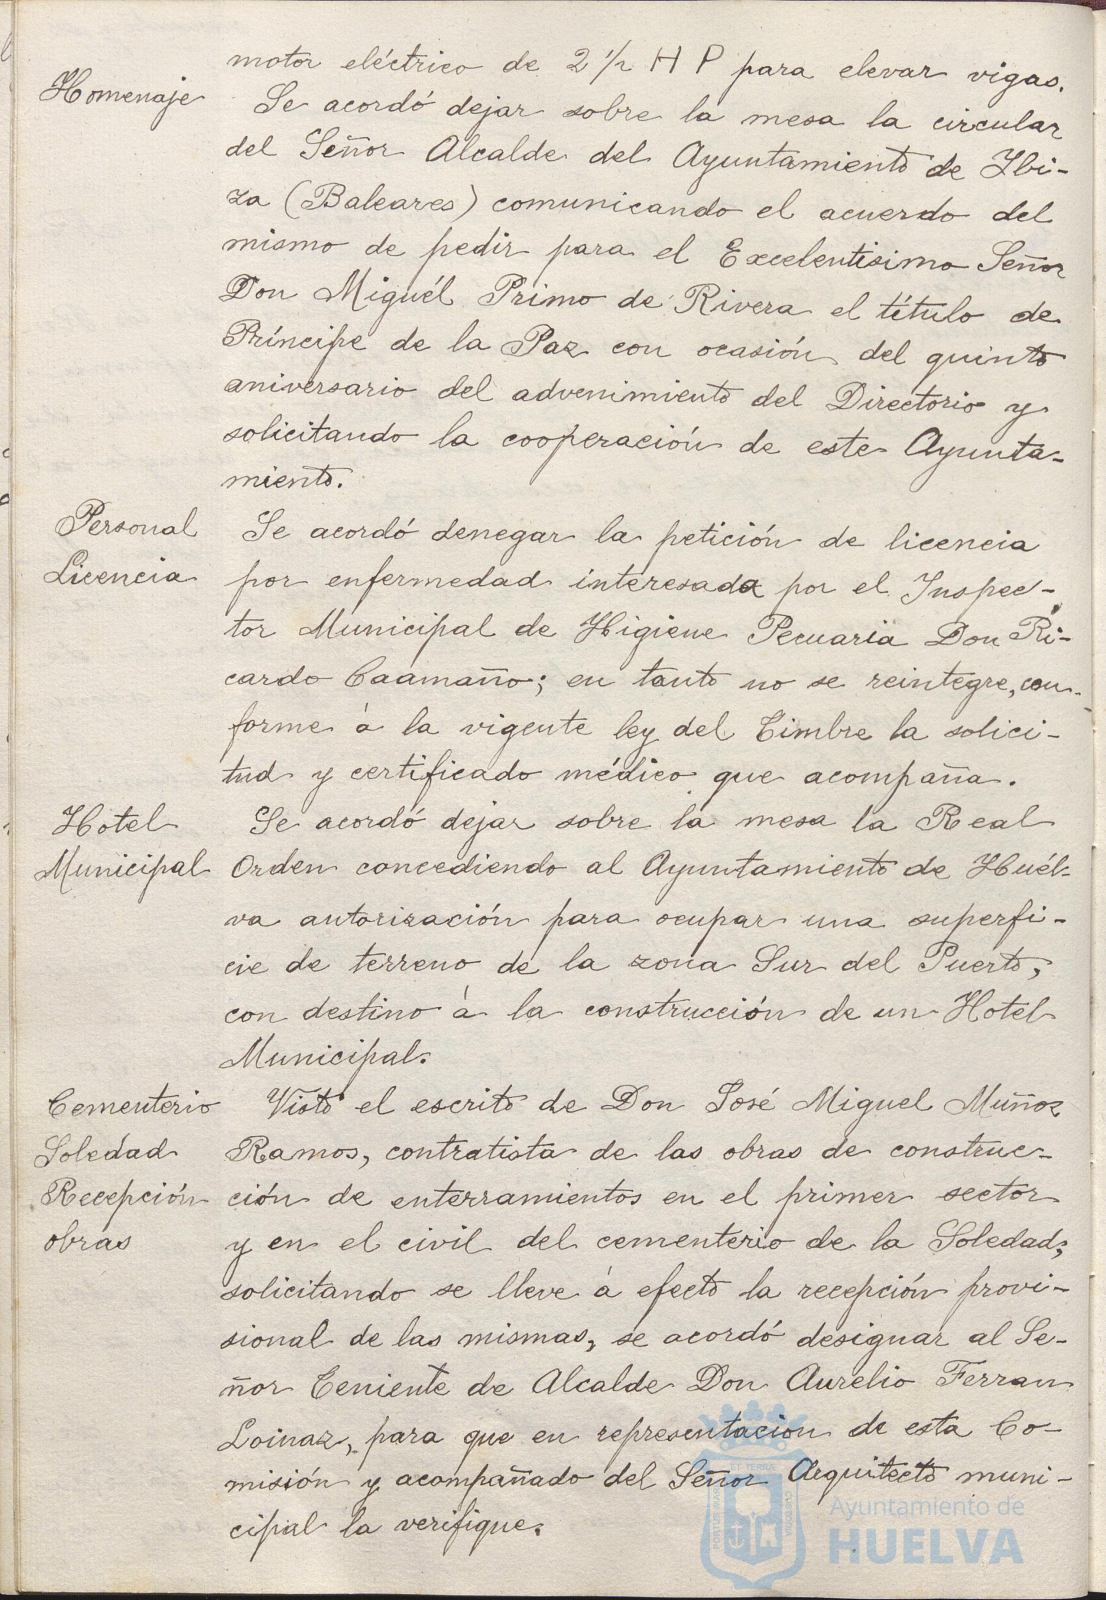 motor eléctrico de 2 1/2 H P para elevar vigas.
Homenaje
Se acordó dejar sobre la mesa la circular
del Señor Alcalde del Ayuntamiento de Ibi-
za (Baleares) comunicando el acuerdo del
mismo de pedir para el Excelentisimo Señor
Don Miguél Primo de Rivera el título de
Príncipe de la Paz con ocasión del quinto
aniversario del advenimiento del Directorio y
solicitando la cooperación de este Ayunta-
miento.
Personal
Licencia
Se acordó denegar la petición de licencia
por enfermedad interesada por el Inspec-
tor Municipal de Higiene Pecuaria Don Ri-
cardo Caamaño; en tanto no se reintegre, con-
forme á la vigente ley del Timbre la solici-
tud y certificado médico que acompaña.
Hotel
Municipal
Se acordó dejar sobre la mesa la Real
Orden concediendo al Ayuntamiento de Huél-
va autorización para ocupar una superfi-
cie de terreno de la zona Sur del Puerto,
con destino á la construcción de un Hotel
Municipal.
Cementerio
Soledad
Recepción
obras
Visto el escrito de Don José Miguel Muñoz
Ramos, contratista de las obras de construc-
ción de enterramientos en el primer sector
y en el civil del cementerio de la Soledad;
solicitando se lleve á efecto la recepción provi-
sional de las mismas, se acordó designar al Se-
ñor Teniente de Alcalde Don Aurelio Ferran
Loinaz, para que en representación de esta Co-
misión y acompañado del Señor Arquitecto muni-
cipal la verifique.
Ayuntamiento de
HUELVA